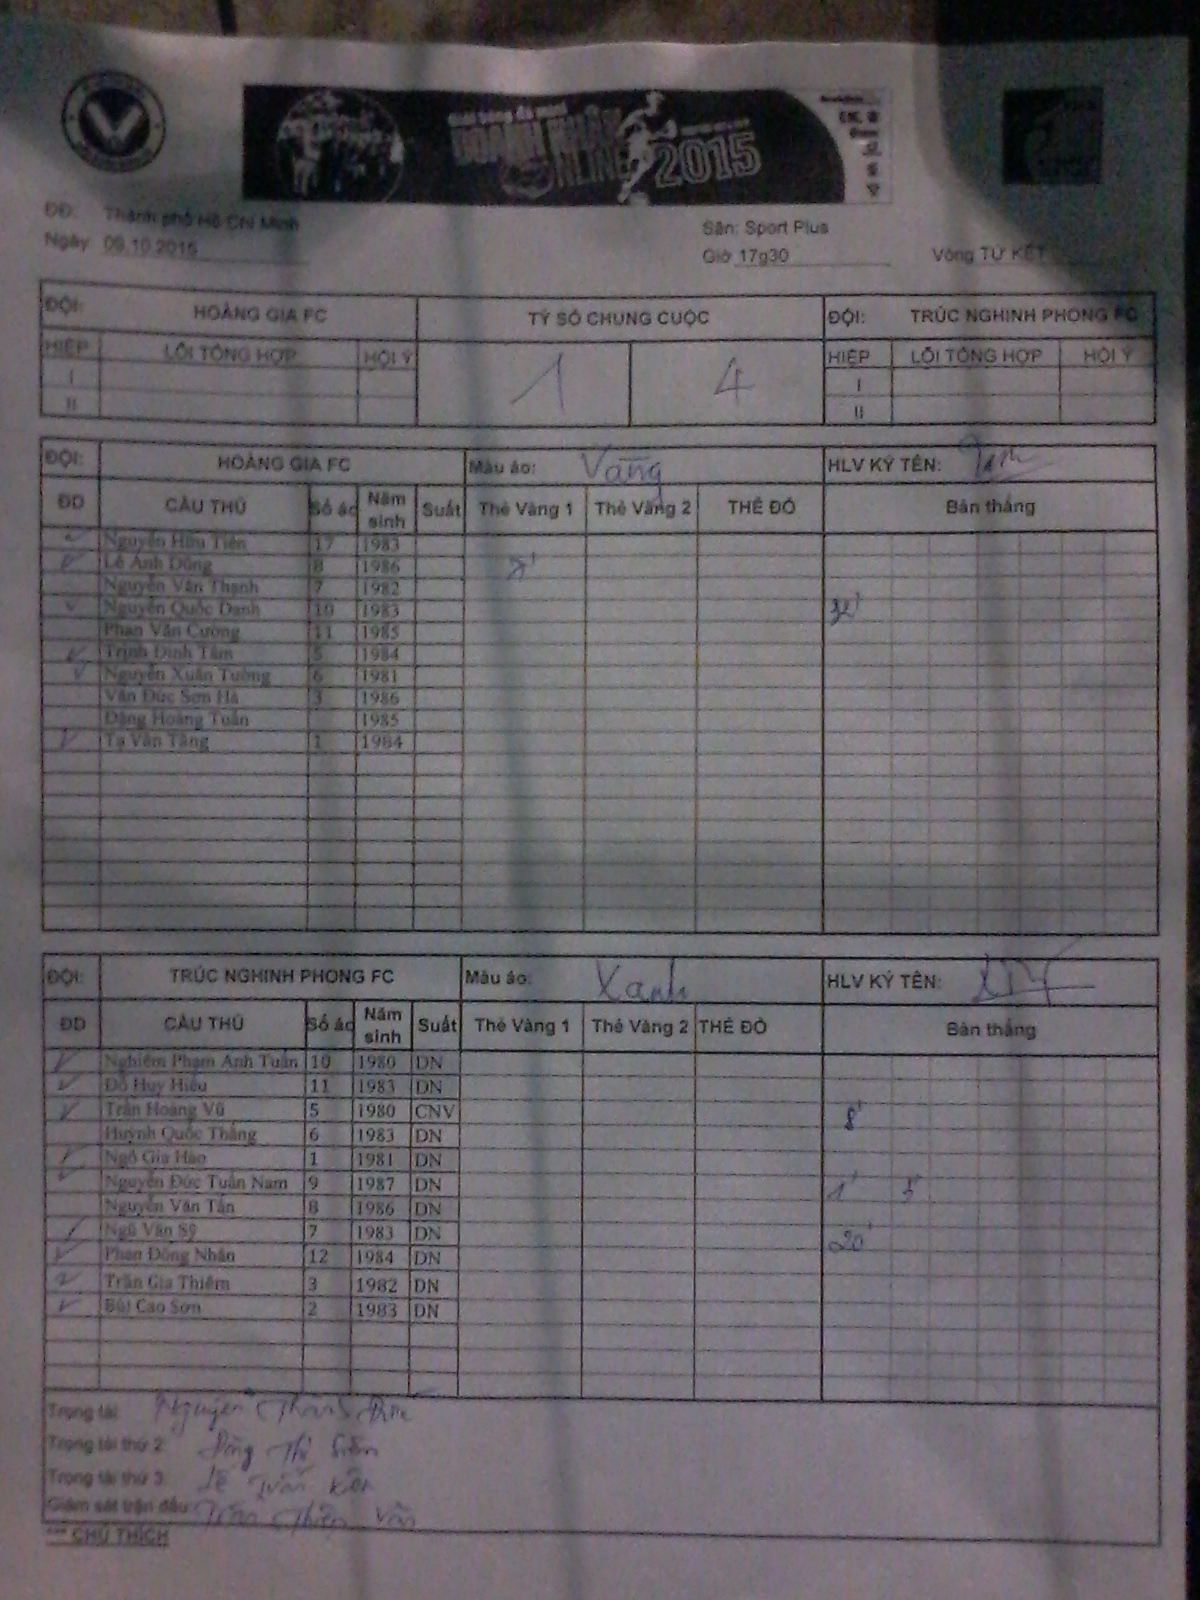 DOANH NHÂN
ONLINE 2015
ĐĐ: Thành phố Hồ Chí Minh
Sân: Sport Plus
Ngày 09.10.2015
Giờ 17g30
Vòng TỨ KẾT
ĐỘI: HOÀNG GIA FC TỶ SỐ CHUNG CUỘC ĐỘI: TRÚC NGHINH PHONG FC
HIỆP LỖI TỔNG HỢP HỘI Ý 1 4 HIỆP LỖI TỔNG HỢP HỘI Ý
I I
II II
ĐỘI: HOÀNG GIA FC Màu áo: Vàng HLV KÝ TÊN:
ĐD CẦU THỦ Số áo Năm sinh Suất Thẻ Vàng 1 Thẻ Vàng 2 THẺ ĐỎ Bàn thắng
Nguyễn Hữu Tiến 17 1983
Lê Anh Dũng 8 1986
Nguyễn Văn Thạnh 7 1982
Nguyễn Quốc Danh 10 1983
Phan Văn Cường 11 1985
Trịnh Đình Tâm 5 1984
Nguyễn Xuân Tường 6 1981
Văn Đức Sơn Hà 3 1986
Đặng Hoàng Tuấn 1985
Tạ Văn Tăng 1 1984
ĐỘI: TRÚC NGHINH PHONG FC Màu áo: Xanh HLV KÝ TÊN:
ĐD CẦU THỦ Số áo Năm sinh Suất Thẻ Vàng 1 Thẻ Vàng 2 THẺ ĐỎ Bàn thắng
Nghiêm Phạm Anh Tuấn 10 1980 DN
Đỗ Huy Hiếu 11 1983 DN
Trần Hoàng Vũ 5 1980 CNV 8'
Huỳnh Quốc Thắng 6 1983 DN
Ngô Gia Hào 1 1981 DN
Nguyễn Đức Tuấn Nam 9 1987 DN 1' 5'
Nguyễn Văn Tấn 8 1986 DN
Ngũ Văn Sỹ 7 1983 DN 20'
Phan Đông Nhân 12 1984 DN
Trần Gia Thiêm 3 1982 DN
Bùi Cao Sơn 2 1983 DN
Trọng tài: Nguyễn
Trọng tài thứ 2:
Trọng tài thứ 3: Lê Tuấn
Giám sát trận đấu: Trần
*** CHÚ THÍCH